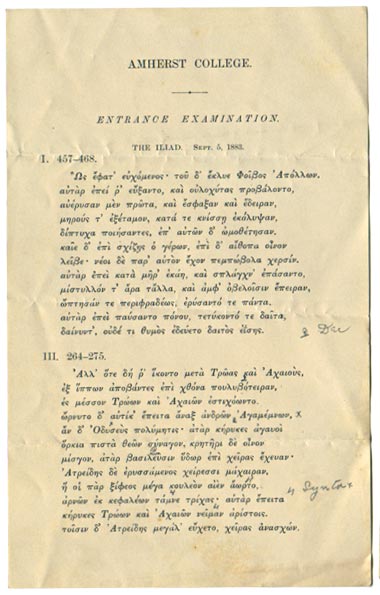 AMHERST COLLEGE.
ENTRANCE EXAMINATION.
THE ILIAD. SEPT. 5, 1883.
I. 457–468.
Ὣς ἔφατ' εὐχόμενος· τοῦ δ' ἔκλυε Φοῖβος Ἀπόλλων.
αὐτὰρ ἐπεί ῥ' εὔξαντο, καὶ οὐλοχύτας προβάλοντο,
αὐέρυσαν μὲν πρῶτα, καὶ ἔσφαξαν καὶ ἔδειραν,
μηρούς τ' ἐξέταμον, κατά τε κνίσσῃ ἐκάλυψαν,
δίπτυχα ποιήσαντες, ἐπ' αὐτῶν δ' ὠμοθέτησαν.
καῖε δ' ἐπὶ σχίζῃς ὁ γέρων, ἐπὶ δ' αἴθοπα οἶνον
λεῖβε· νέοι δὲ παρ' αὐτὸν ἔχον πεμπώβολα χερσίν.
αὐτὰρ ἐπεὶ κατὰ μῆρ' ἐκάη, καὶ σπλάγχν' ἐπάσαντο,
μίστυλλόν τ' ἄρα τἄλλα, καὶ ἀμφ' ὀβελοῖσιν ἔπειραν,
ὤπτησάν τε περιφραδέως, ἐρύσαντό τε πάντα.
αὐτὰρ ἐπεὶ παύσαντο πόνου, τετύκοντό τε δαῖτα,
δαίνυντ', οὐδέ τι θυμὸς ἐδεύετο δαιτὸς ἐΐσης.
3 Dec
III. 264–275.
Ἀλλ' ὅτε δή ῥ' ἵκοντο μετὰ Τρῶας καὶ Ἀχαιούς,
ἐξ ἵππων ἀποβάντες ἐπὶ χθόνα πουλυβότειραν,
ἐς μέσσον Τρώων καὶ Ἀχαιῶν ἐστιχόωντο.
ὤρνυτο δ' αὐτίκ' ἔπειτα ἄναξ ἀνδρῶν Ἀγαμέμνων,
ἂν δ' Ὀδυσεὺς πολύμητις· ἀτὰρ κήρυκες ἀγαυοὶ
ὅρκια πιστὰ θεῶν σύναγον, κρητῆρι δὲ οἶνον
μίσγον, ἀτὰρ βασιλεῦσιν ὕδωρ ἐπὶ χεῖρας ἔχευαν.
Ἀτρείδης δὲ ἐρυσσάμενος χείρεσσι μάχαιραν,
ἥ οἱ πὰρ ξίφεος μέγα κουλεὸν αἰὲν ἄωρτο,
ἀρνῶν ἐκ κεφαλέων τάμνε τρίχας· αὐτὰρ ἔπειτα
4 Syntax
κήρυκες Τρώων καὶ Ἀχαιῶν νεῖμαν ἀρίστοις.
τοῖσιν δ' Ἀτρείδης μεγάλ' εὔχετο, χεῖρας ἀνασχών.